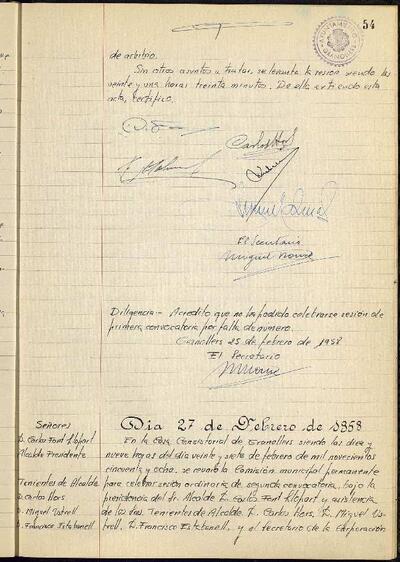 54
AYUNTAMIENTO
GRANOLLERS
de arbitrio.
Sin otros asuntos a tratar, se levanta la sesión siendo las
veinte y una horas treinta minutos. De ella extiendo esta
acta, certifico.
Carlos
El Secretario
Miguel
Diligencia.- Acredito que no ha podido celebrarse sesión de
primera convocatoria por falta de número.
Granollers 25 de febrero de 1958
El Secretario
Señores
D. Carlos Font Llopart
Alcalde Presidente
Tenientes de Alcalde
D. Carlos Hors
D. Miguel
D. Francisco Estabanell
Dia 27 de Febrero de 1958
En la Casa Consistorial de Granollers siendo las diez y
nueve horas del dia veinte y siete de febrero de mil novecientos
cincuenta y ocho, se reunió la Comisión municipal permanente
para celebrar sesión ordinaria de segunda convocatoria, bajo la
presidencia del Sr. Alcalde D. Carlos Font Llopart y asistencia
de los Sres. Tenientes de Alcalde D. Carlos Hors, D. Miguel
D. Francisco Estabanell, y el secretario de la Corporación